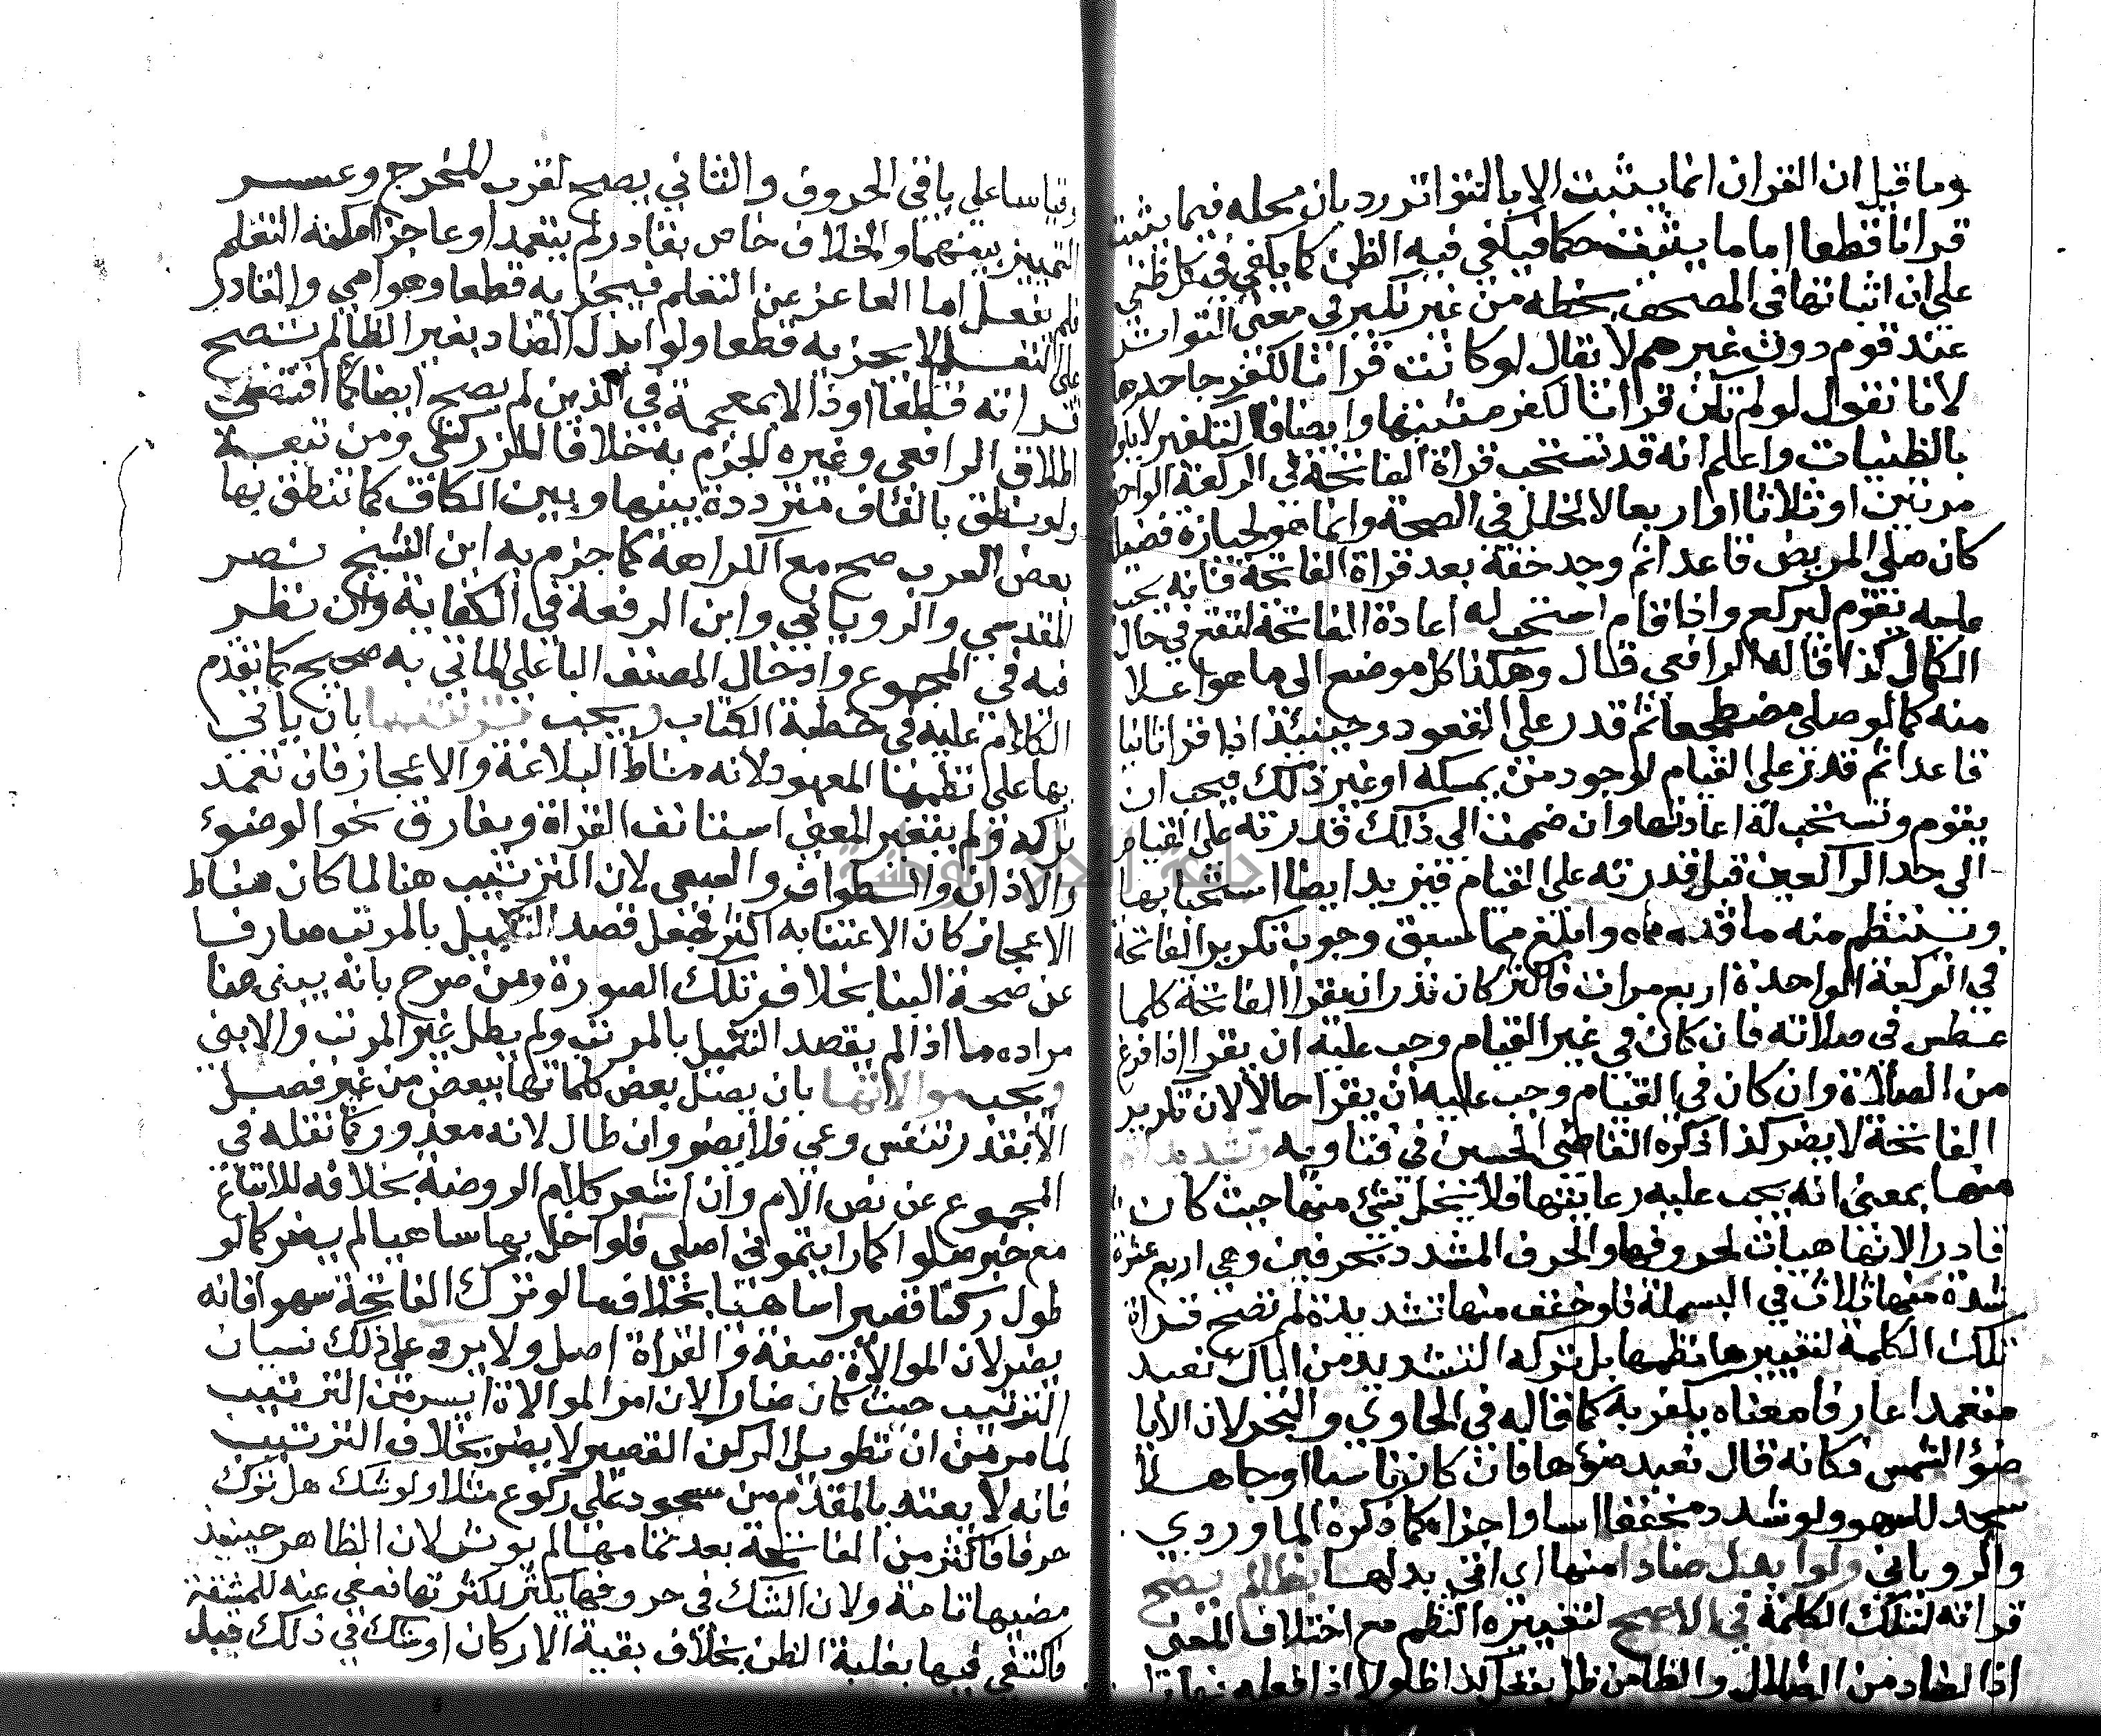 وما قيل ان القران انما يثبت الا بالتواتر رد بان محله فيما يثبت
قرانا قطعا اما ما يثبت حكما فيكفي فيه الظن كما يكفي في كل ظني
على ان اثباتها في المصحف بخطه من غير نكير في معنى التواتر
عند قوم دون غيرهم لا نقال لو كانت قرانا لكفر جاحدها
لانا نقول لو لم تكن قرانا لكفر مثبتها وايضا فالتكفير لا يكون
بالظنيات واعلم انه قد تستحب قراة الفاتحة في الركعة الواحدة
مرتين او ثلاثا او اربعا لا لخلل في الصحة وانما هو لحيازة فضيلة
كان صلى المريض قاعدا ثم وجد خفة بعد قراة الفاتحة فانه يجب
عليه يقوم ليركع واذا قام استحب له اعادة الفاتحة لتقع في حال
الكمال كذا قاله الرافعى قال وهكذا كل موضع الى ما هو اعلا
منه كما لو صلى مضطجعا ثم قدر على القعود وحينئذ اذا قرا ثانيا
قاعدا ثم قدر على القيام لوجود من يمسكه او غير ذلك فيجب ان
يقوم وتستحب له اعادتها وان ضممت الى ذلك قدرته على القيام
الى حد الراكعين قبل قدرته على القيام فيزيد ايضا استحبابها
وتنتظم منه ما قدمناه وابلغ مما سبق وجوب تكرير الفاتحة
في الركعة الواحدة اربع مرات فاكثر كان نذر ان يقرا الفاتحة كلما
عطس في صلاته فان كان في غير القيام وجب عليه ان يقرا اذا فرغ
من الصلاة وان كان في القيام وجب عليه ان يقرا حالا لان تكرير
الفاتحة لا يضر كذا ذكره القاضى الحسين في فتاويه وتشديداتها
منها بمعنى انه يجب عليه رعايتها فلا يخل بشئ منها حيث كان
قادرا لانها هيات لحروفها والحرف المشدد بحرفين وهي اربع عشرة
شدة منها ثلاث في البسملة فلو خفف منها تشديدة لم تصح قراة
تلك الكلمة لتغييرها نظمها بل تركه التشديد من اياك نعبد
متعمدا عارفا معناه يكفر به كما قاله في الحاوي والبحر لان الايا
ضؤ الشمس فكانه قال نعبد ضؤها فان كان ناسيا او جاهلا
سجد للسهو ولو شدد مخففا اسا واجزاه كما ذكره الماوردي
والروياني ولو ابدل ضادا منها اى اتى بدلها بظا لم يصح
قراته لتلك الكلمة في الاصح لتغييره النظم مع اختلاف المعنى
اذ الضاد من الضلال والظا من ظل يفعل كذا ظلولا اذا فعله نهارا
وقياسا على باقى الحروف والثاني يصح لقرب المخرج وعسر
التمييز بينهما والخلاف خاص بقادر لم يتعمد او عاجز امكنه التعلم
فلم يفعل اما العاجز عن التعلم فيجزيه قطعا وهو امي والقادر
على التعلم لا يجزيه قطعا ولو ابدل الضاد بغير الظا لم تصح
قراته قطعا او ذالا بمعجمة في الذين لم يصح ايضا كما اقتضى
اطلاق الرافعى وغيره للجزم به خلافا للزركشى ومن تبعه
ولو نطق بالقاف مترددة بينها وبين الكاف كما تنطق بها
بعض العرب صح مع الكراهة كما جزم به ابن الشيخ نصر
المقدسي والروياني وابن الرفعة في الكفاية وان نظر
فيه في المجموع وادخال المصنف البا على الماتي به صحيح كما تقدم
الكلام عليه في خطبة الكتاب ويجب ترتيبها بان ياتى
بها على نظمها المعهود لانه مناط البلاغة والاعجاز فان تعمد
تركه ولم يتغير المعنى استانف القراة ويفارق نحو الوضوء
والاذان والطواف والسعى لان الترتيب هنا لما كان مناط
الاعجاز كان الاعتنا به اكثر فجعل قصد التكميل بالمرتب صارفا
عن صحة البنا بخلاف تلك الصورة ومن صرح بانه يبنى هنا
مراده ما اذا لم يقصد التكميل بالمرتب ولم يطل غير المرتب والا بنى
ويجب موالاتها بان يصل بعض كلماتها ببعض من غير فصل
الا بقدر تنفس وعي فلا يضر وان طال لانه معذور كما نقله في
المجموع عن نص الام وان اشعر كلام الروضة بخلافه للاتباع
مع خبر صلوا كما رايتموني اصلى فلو اخل بها ساهيا لم يضر كما لو
طول ركنا قصيرا ساهيا بخلاف ما لو ترك الفاتحة سهوا فانه
يضر لان الموالاة صفة والقراة اصل ولا يرد على ذلك نسيان
الترتيب حيث كان ضارا لان امر الموالاة ايسر من الترتيب
لما مر من ان تطويل الركن القصير لا يضر بخلاف الترتيب
فانه لا يعتد بالمقدم من سجود على ركوع مثلا ولو شك هل ترك
حرفا فاكثر من الفاتحة بعد تمامها لم يوثر لان الظاهر حينيذ
مضيها تامة ولان الشك في حروفها يكثر لكثرتها فعفى عنه للمشقة
فاكتفى فيها بغلبة الظن بخلاف بقية الاركان او شك في ذلك قبل
جامعة النجاح الوطنية